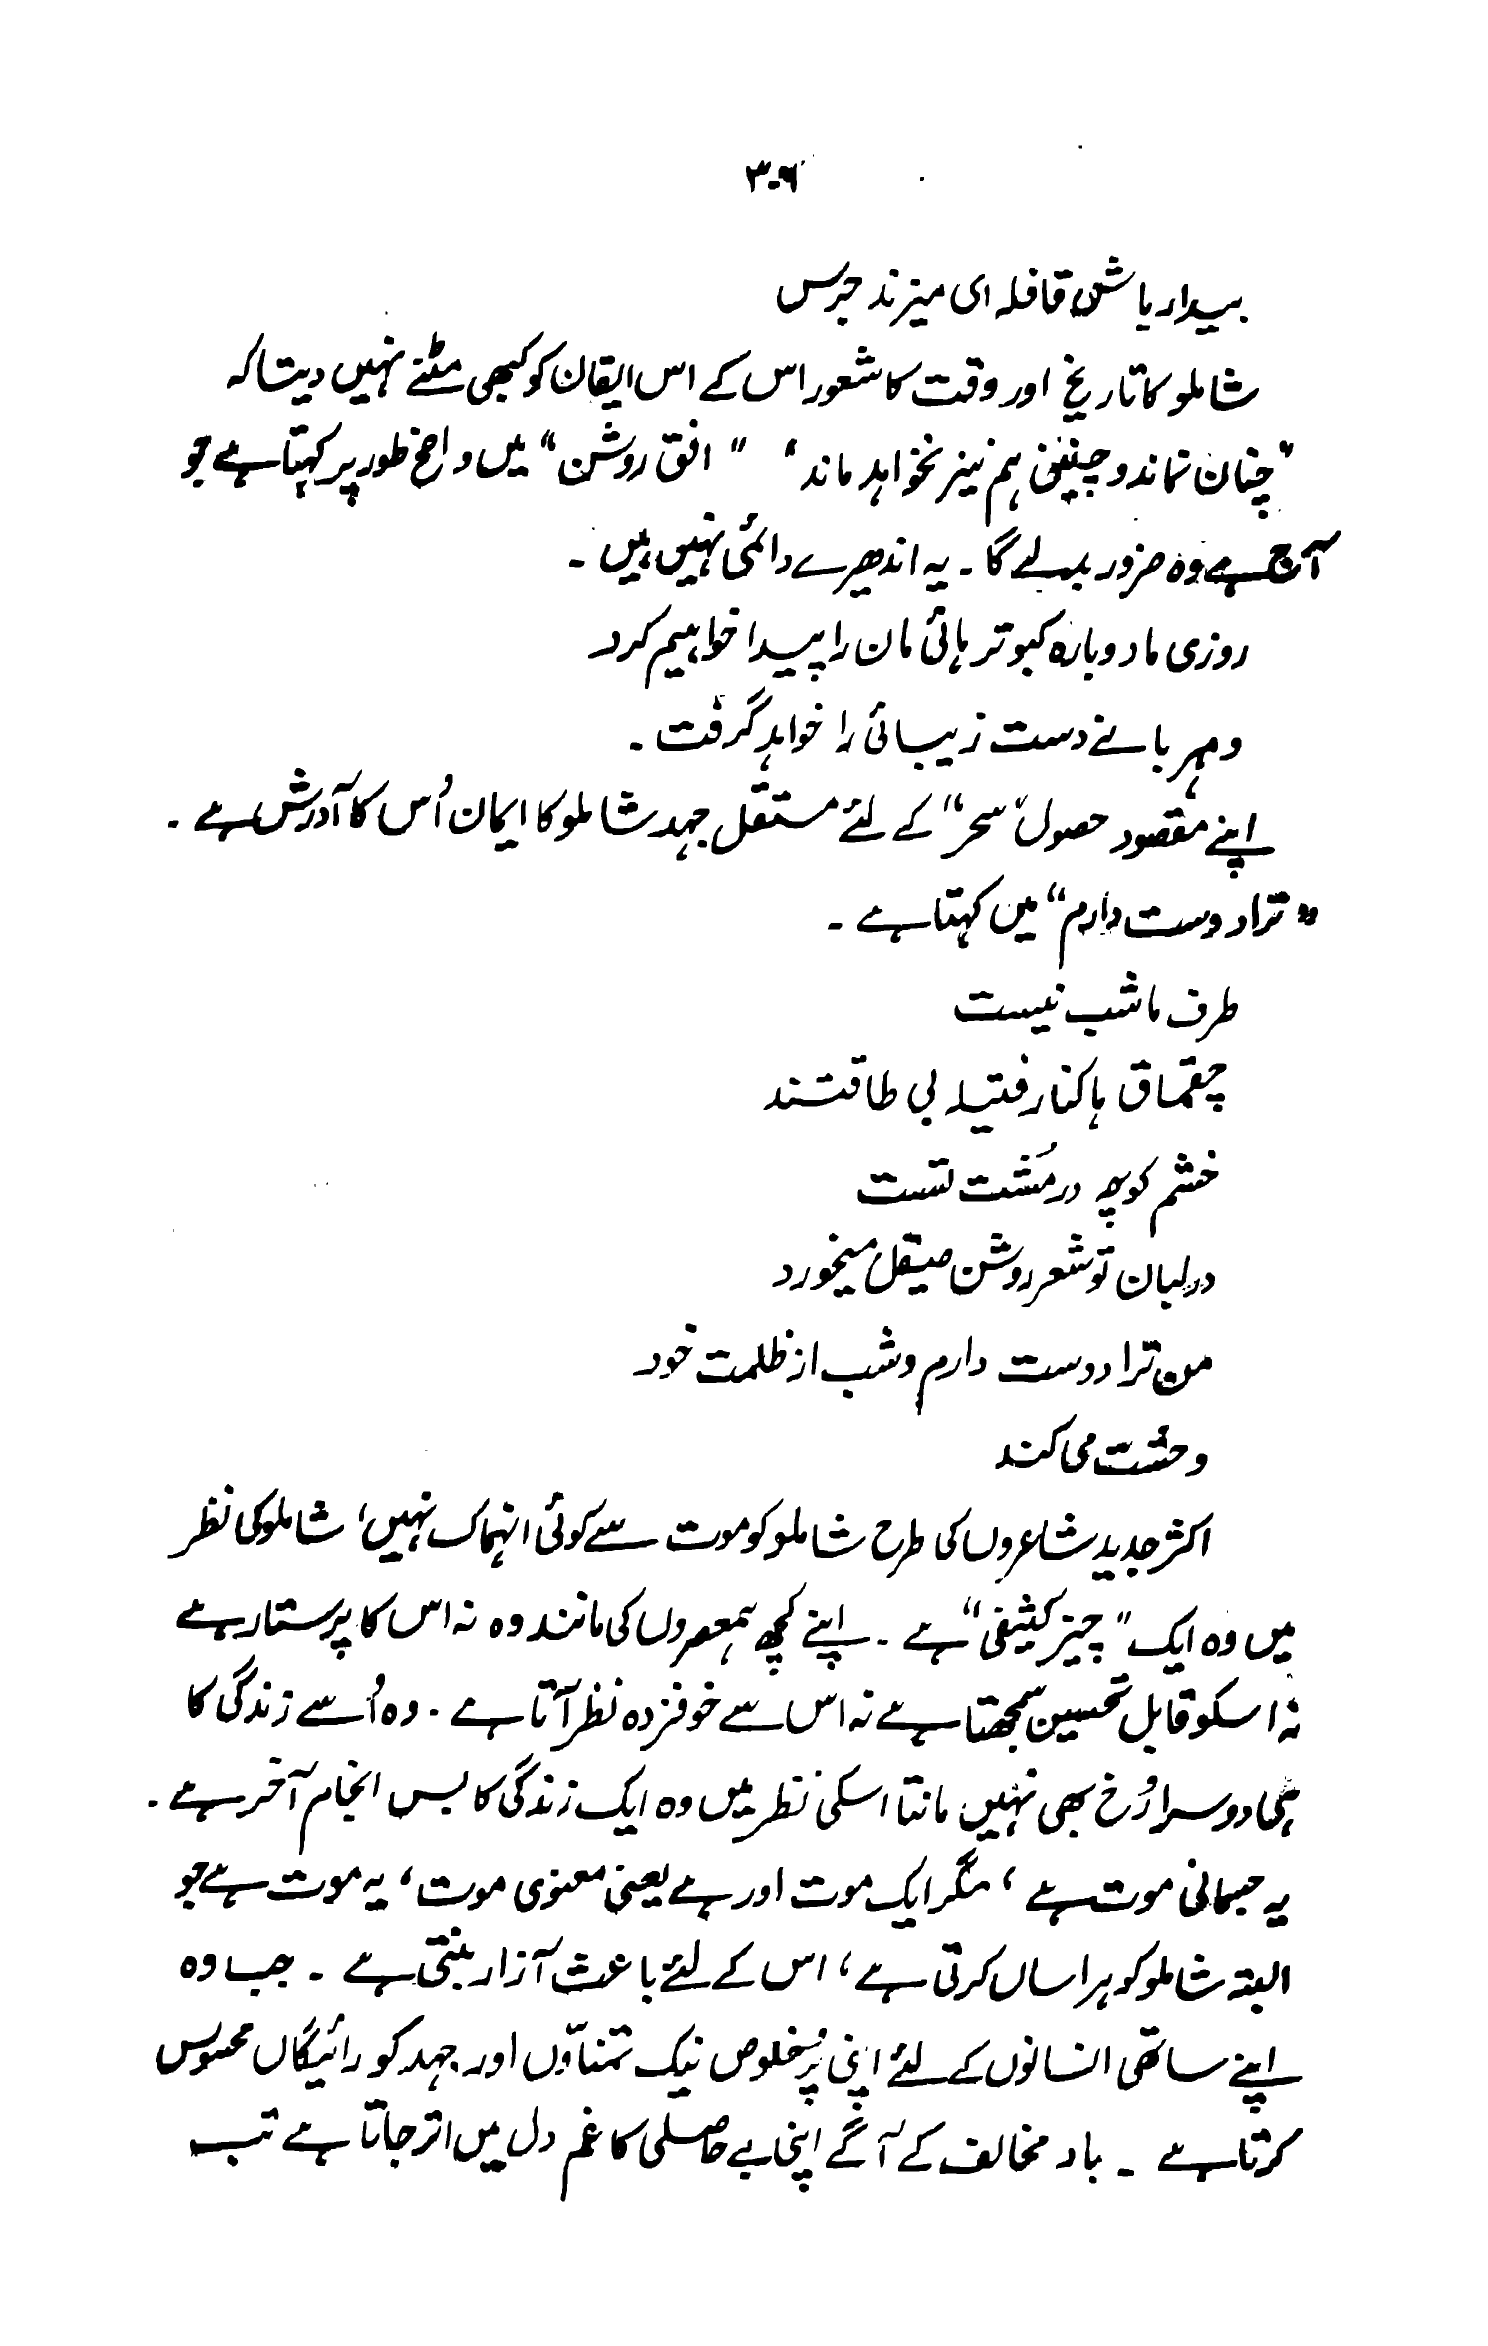 ۳۰۶
بیدار باش قافلہ ای میزند جرس
شاملو کا تاریخ اور وقت کا شعور اس کے اس ایقان کو کبھی مٹنے نہیں دیتا کہ
"چنان نماند و چنین ہم نیز نخواہد ماند" "افق روشن" میں واضح طور پر کہتا ہے جو
آج ہے وہ ضرور بدلے گا ۔ یہ اندھیرے دائمی نہیں ہیں ۔
روزی ما دوبارہ کبوتر ہائی مان را پیدا خواہیم کرد
و مہربانے دست زیبائی را خواہد گرفت ۔
اپنے مقصود حصول "سحر" کے لئے مستقل جہد شاملو کا ایمان اُس کا آدرش ہے ۔
"ترا دوست دارم" میں کہتا ہے ۔
طرف ما شب نیست
چقماق ہا کنار فتیلہ بی طاقتند
خشم کوچہ در مُشت تست
در لبان تو شعر روشن صیقل میخورد
من ترا دوست دارم و شب از ظلمت خود
وحشت می کند
اکثر جدید شاعروں کی طرح شاملو کو موت سے کوئی انہماک نہیں، شاملو کی نظر
میں وہ ایک "چیز کثیفی" ہے ۔ اپنے کچھ ہمعصروں کی مانند وہ نہ اس کا پرستار ہے
نہ اسکو قابل تحسین سمجھتا ہے نہ اس سے خوفزدہ نظر آتا ہے ۔ وہ اُسے زندگی کا
ہی دوسرا رُخ بھی نہیں مانتا اسکی نظر میں وہ ایک زندگی کا بس انجام آخر ہے ۔
یہ جسمانی موت ہے ، مگر ایک موت اور ہے یعنی معنوی موت ، یہ موت ہے جو
البتہ شاملو کو ہراساں کرتی ہے ، اس کے لئے باعث آزار بنتی ہے ۔ جب وہ
اپنے ساتھی انسانوں کے لئے اپنی پُرخلوص نیک تمناؤں اور جہد کو رائیگاں محسوس
کرتا ہے ۔ باد مخالف کے آگے اپنی بے حاصلی کا غم دل میں اتر جاتا ہے تب